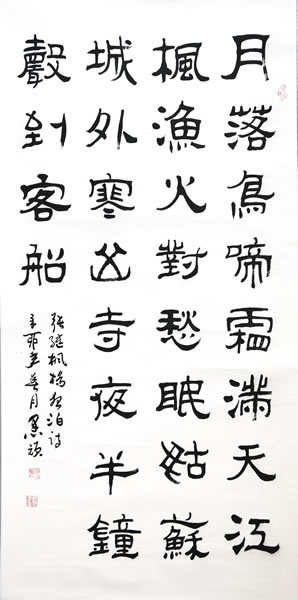 月落烏啼霜滿天江
楓漁火對愁眠姑蘇
城外寒山寺夜半鐘
聲到客船
張繼楓橋夜泊詩
辛卯年 月